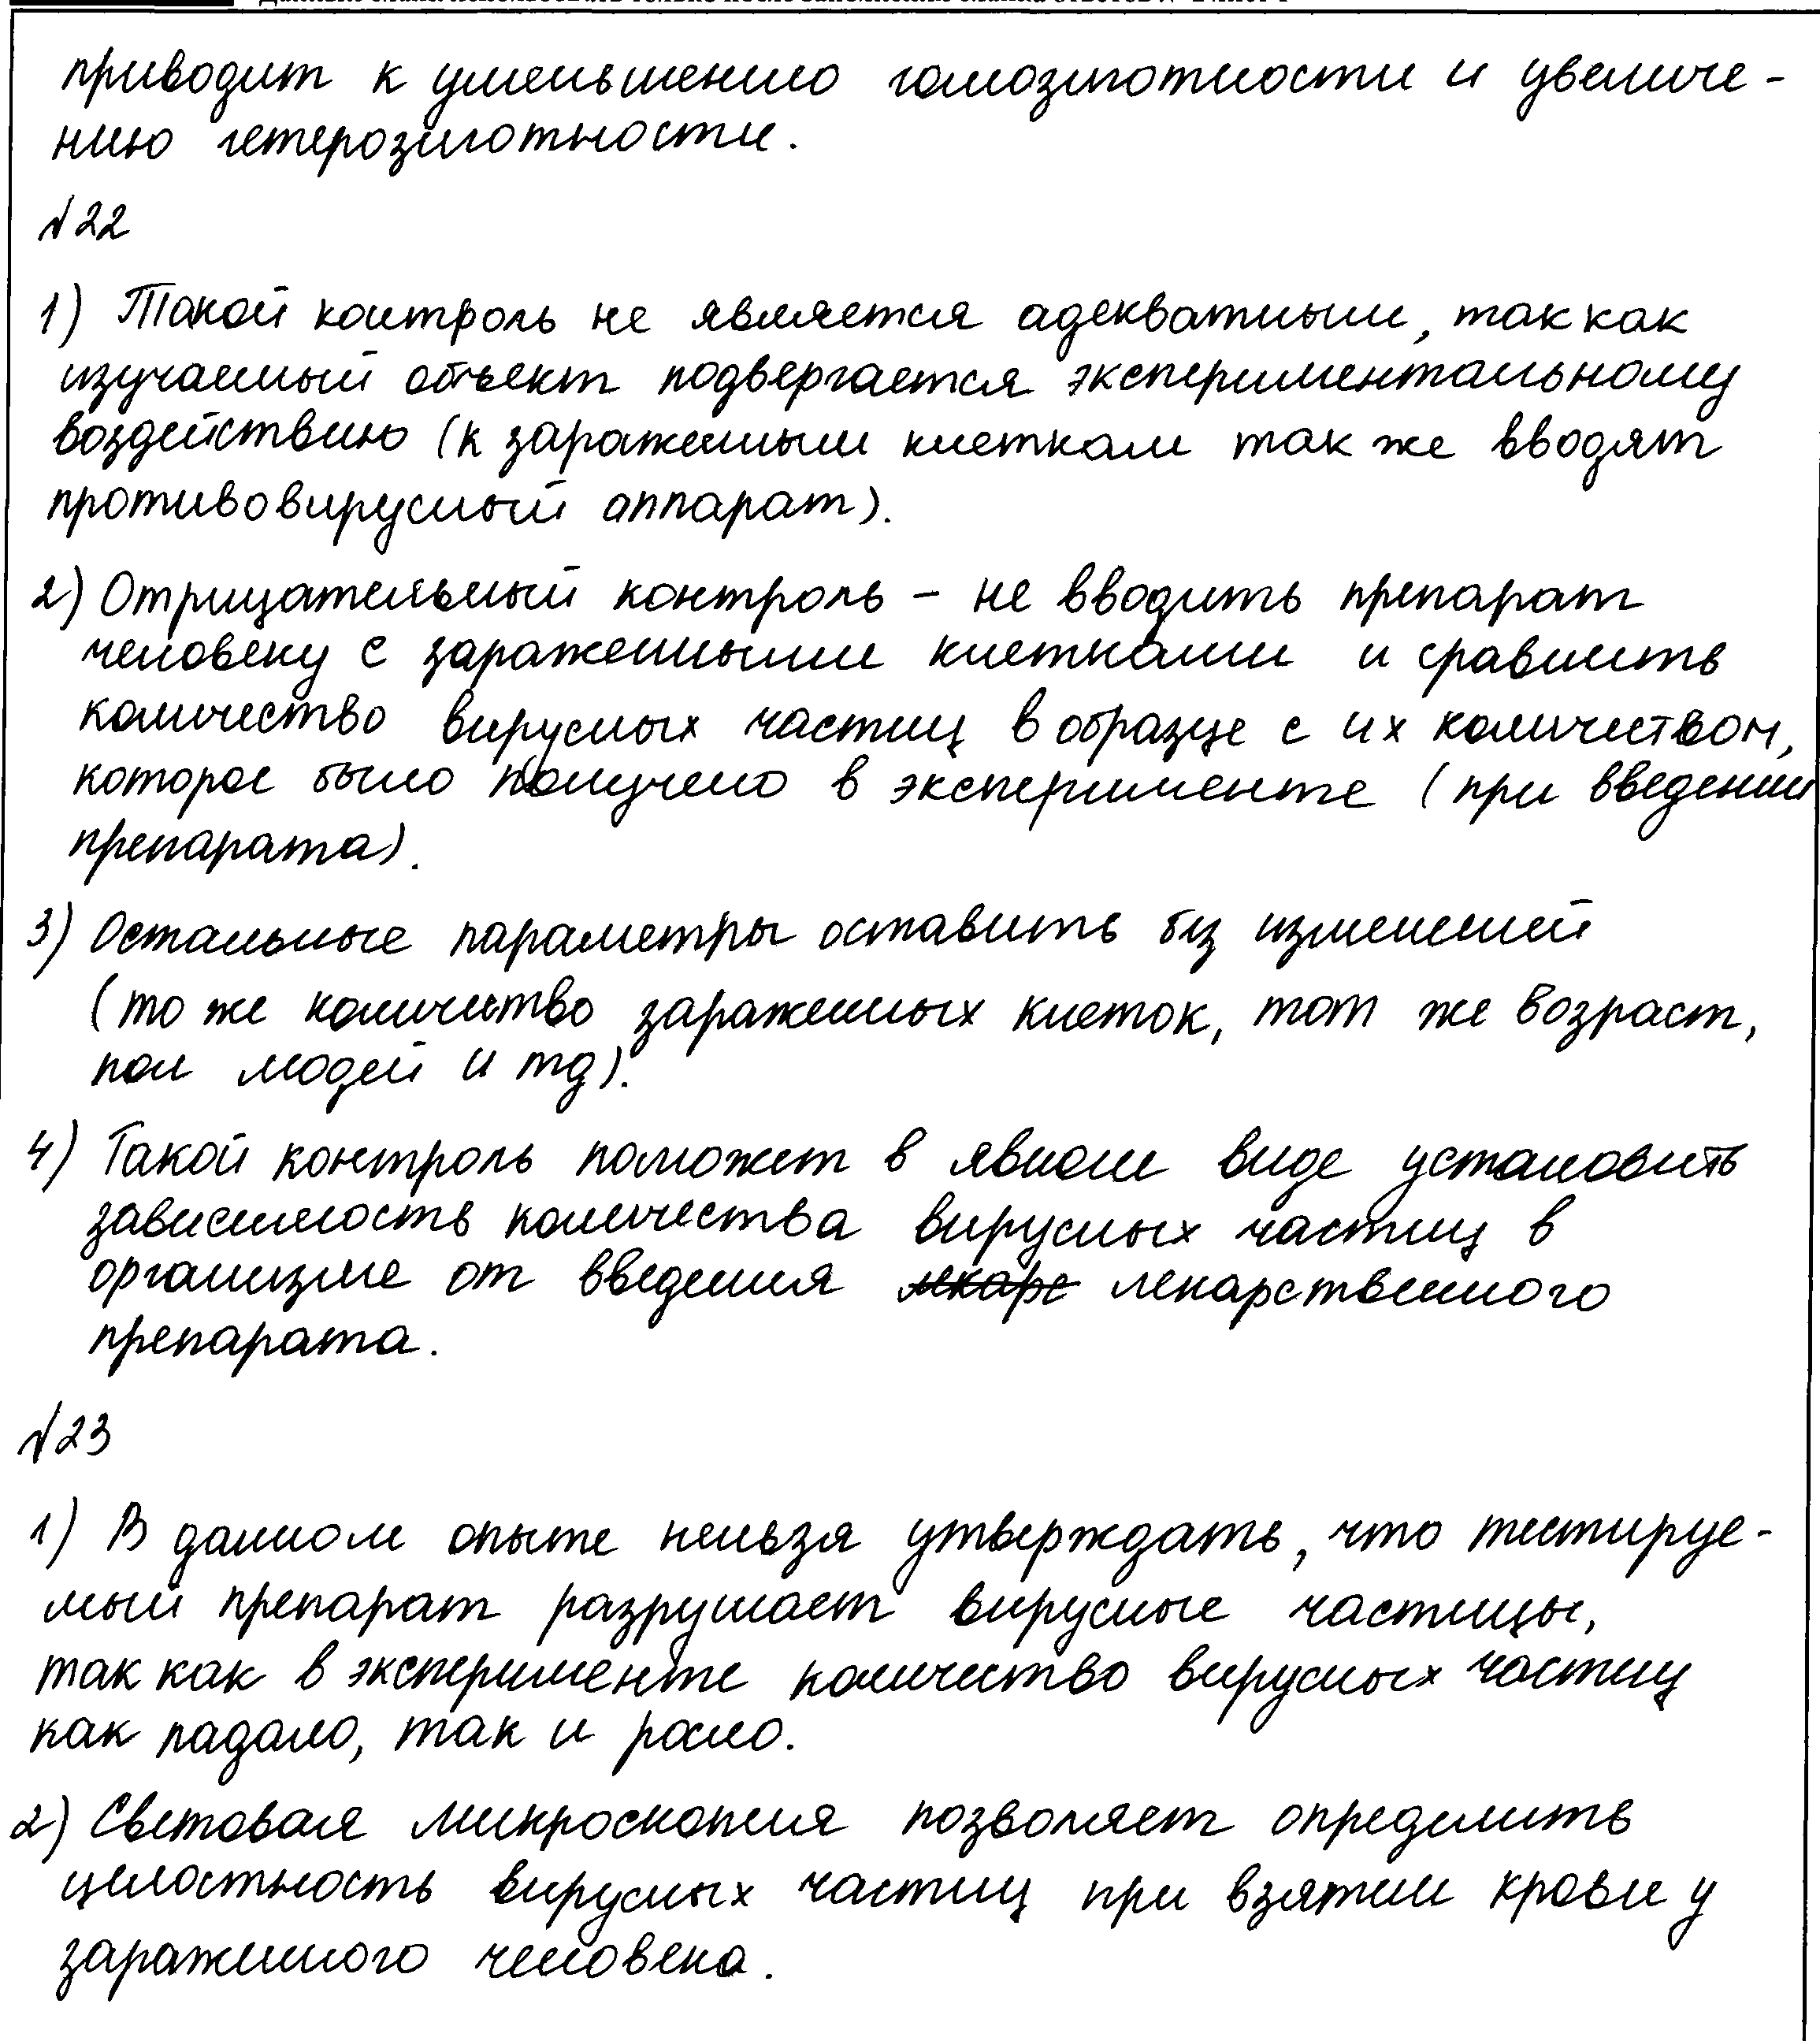 приводит к уменьшению гомозиготности и увеличе-
нию гетерозиготности.
№22
1) Такой контроль не является адекватным, так как
изучаемый объект подвергается экспериментальному
воздействию (к зараженным клеткам так же вводят
противовирусный аппарат).
2) Отрицательный контроль - не вводить препарат
человеку с зараженными клетками и сравнить
количество вирусных частиц в образце с их количеством,
которое было получено в эксперименте (при введении
препарата).
3) Остальные параметры оставить без изменений
(то же количество зараженных клеток, тот же возраст,
пол людей и тд).
4) Такой контроль поможет в явном виде установить
зависимость количества вирусных частиц в
организме от введения лекарс лекарственного
препарата.
№23
1) В данном опыте нельзя утверждать, что тестируе-
мый препарат разрушает вирусные частицы,
так как в эксперименте количество вирусных частиц
как падало, так и росло.
2) Световая микроскопия позволяет определить
целостность вирусных частиц при взятии крови у
зараженного человека.